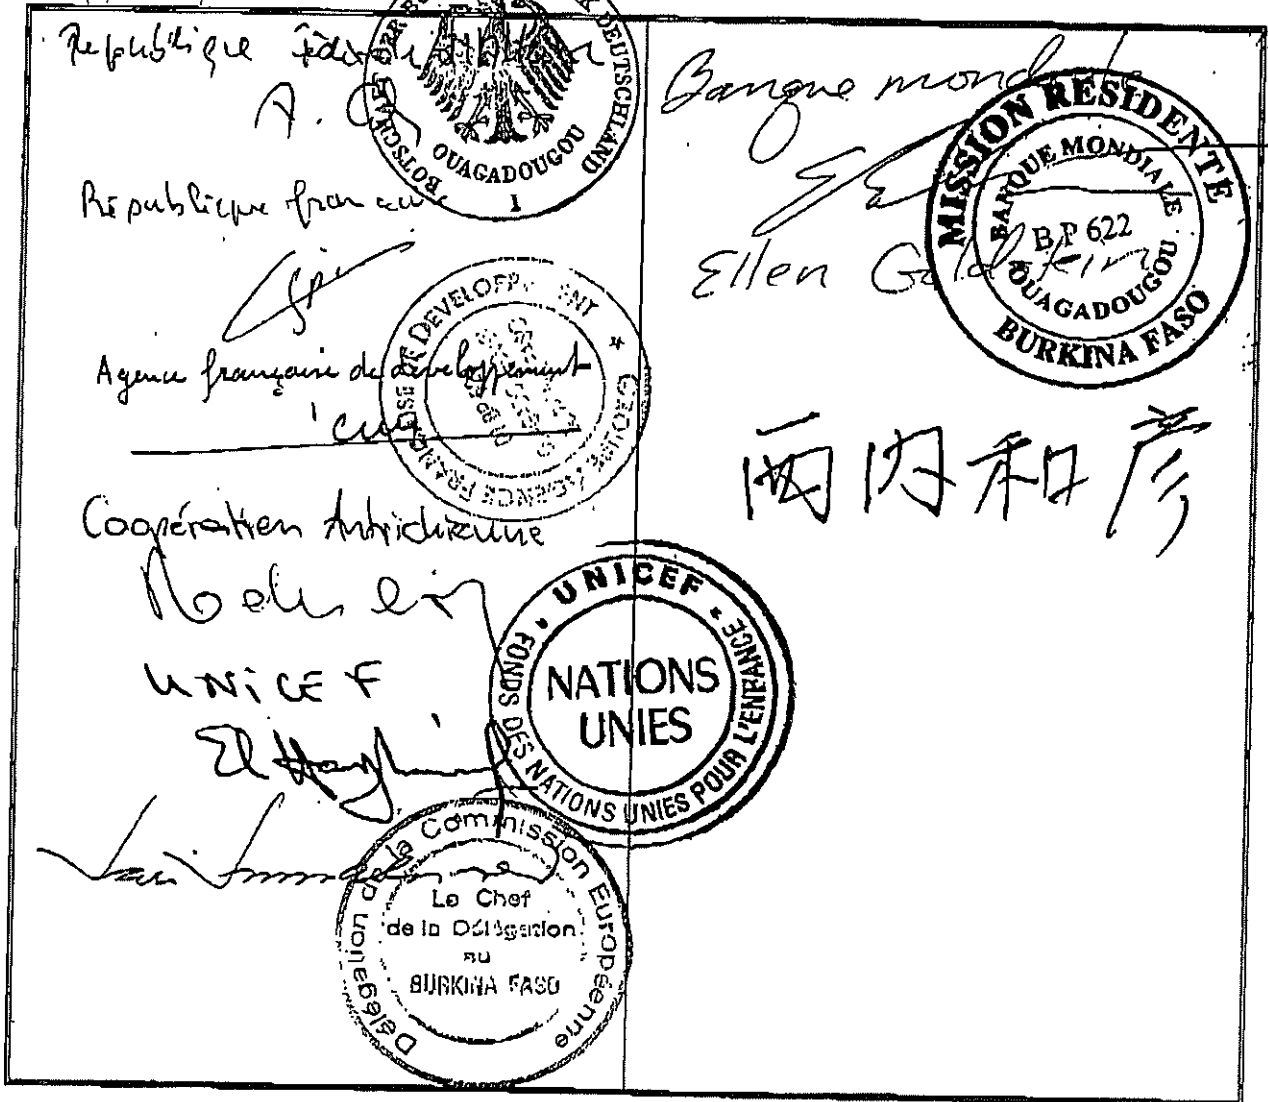 République
BOTSCHAFT DER BUNDESREPUBLIK DEUTSCHLAND
OUAGADOUGOU
1
République française
Agence française de développement
GROUPE AGENCE FRANCAISE DE DEVELOPPEMENT
Coopération Autrichienne
UNICEF
UNICEF
FONDS DES NATIONS UNIES POUR L'ENFANCE
NATIONS
UNIES
Délégation de la Commission Européenne
Le Chef
de la Délégation
au
BURKINA FASO
Banque mondiale
MISSION RESIDENTE
BANQUE MONDIALE
B.P 622
OUAGADOUGOU
BURKINA FASO
Ellen Goldstein
内和彦